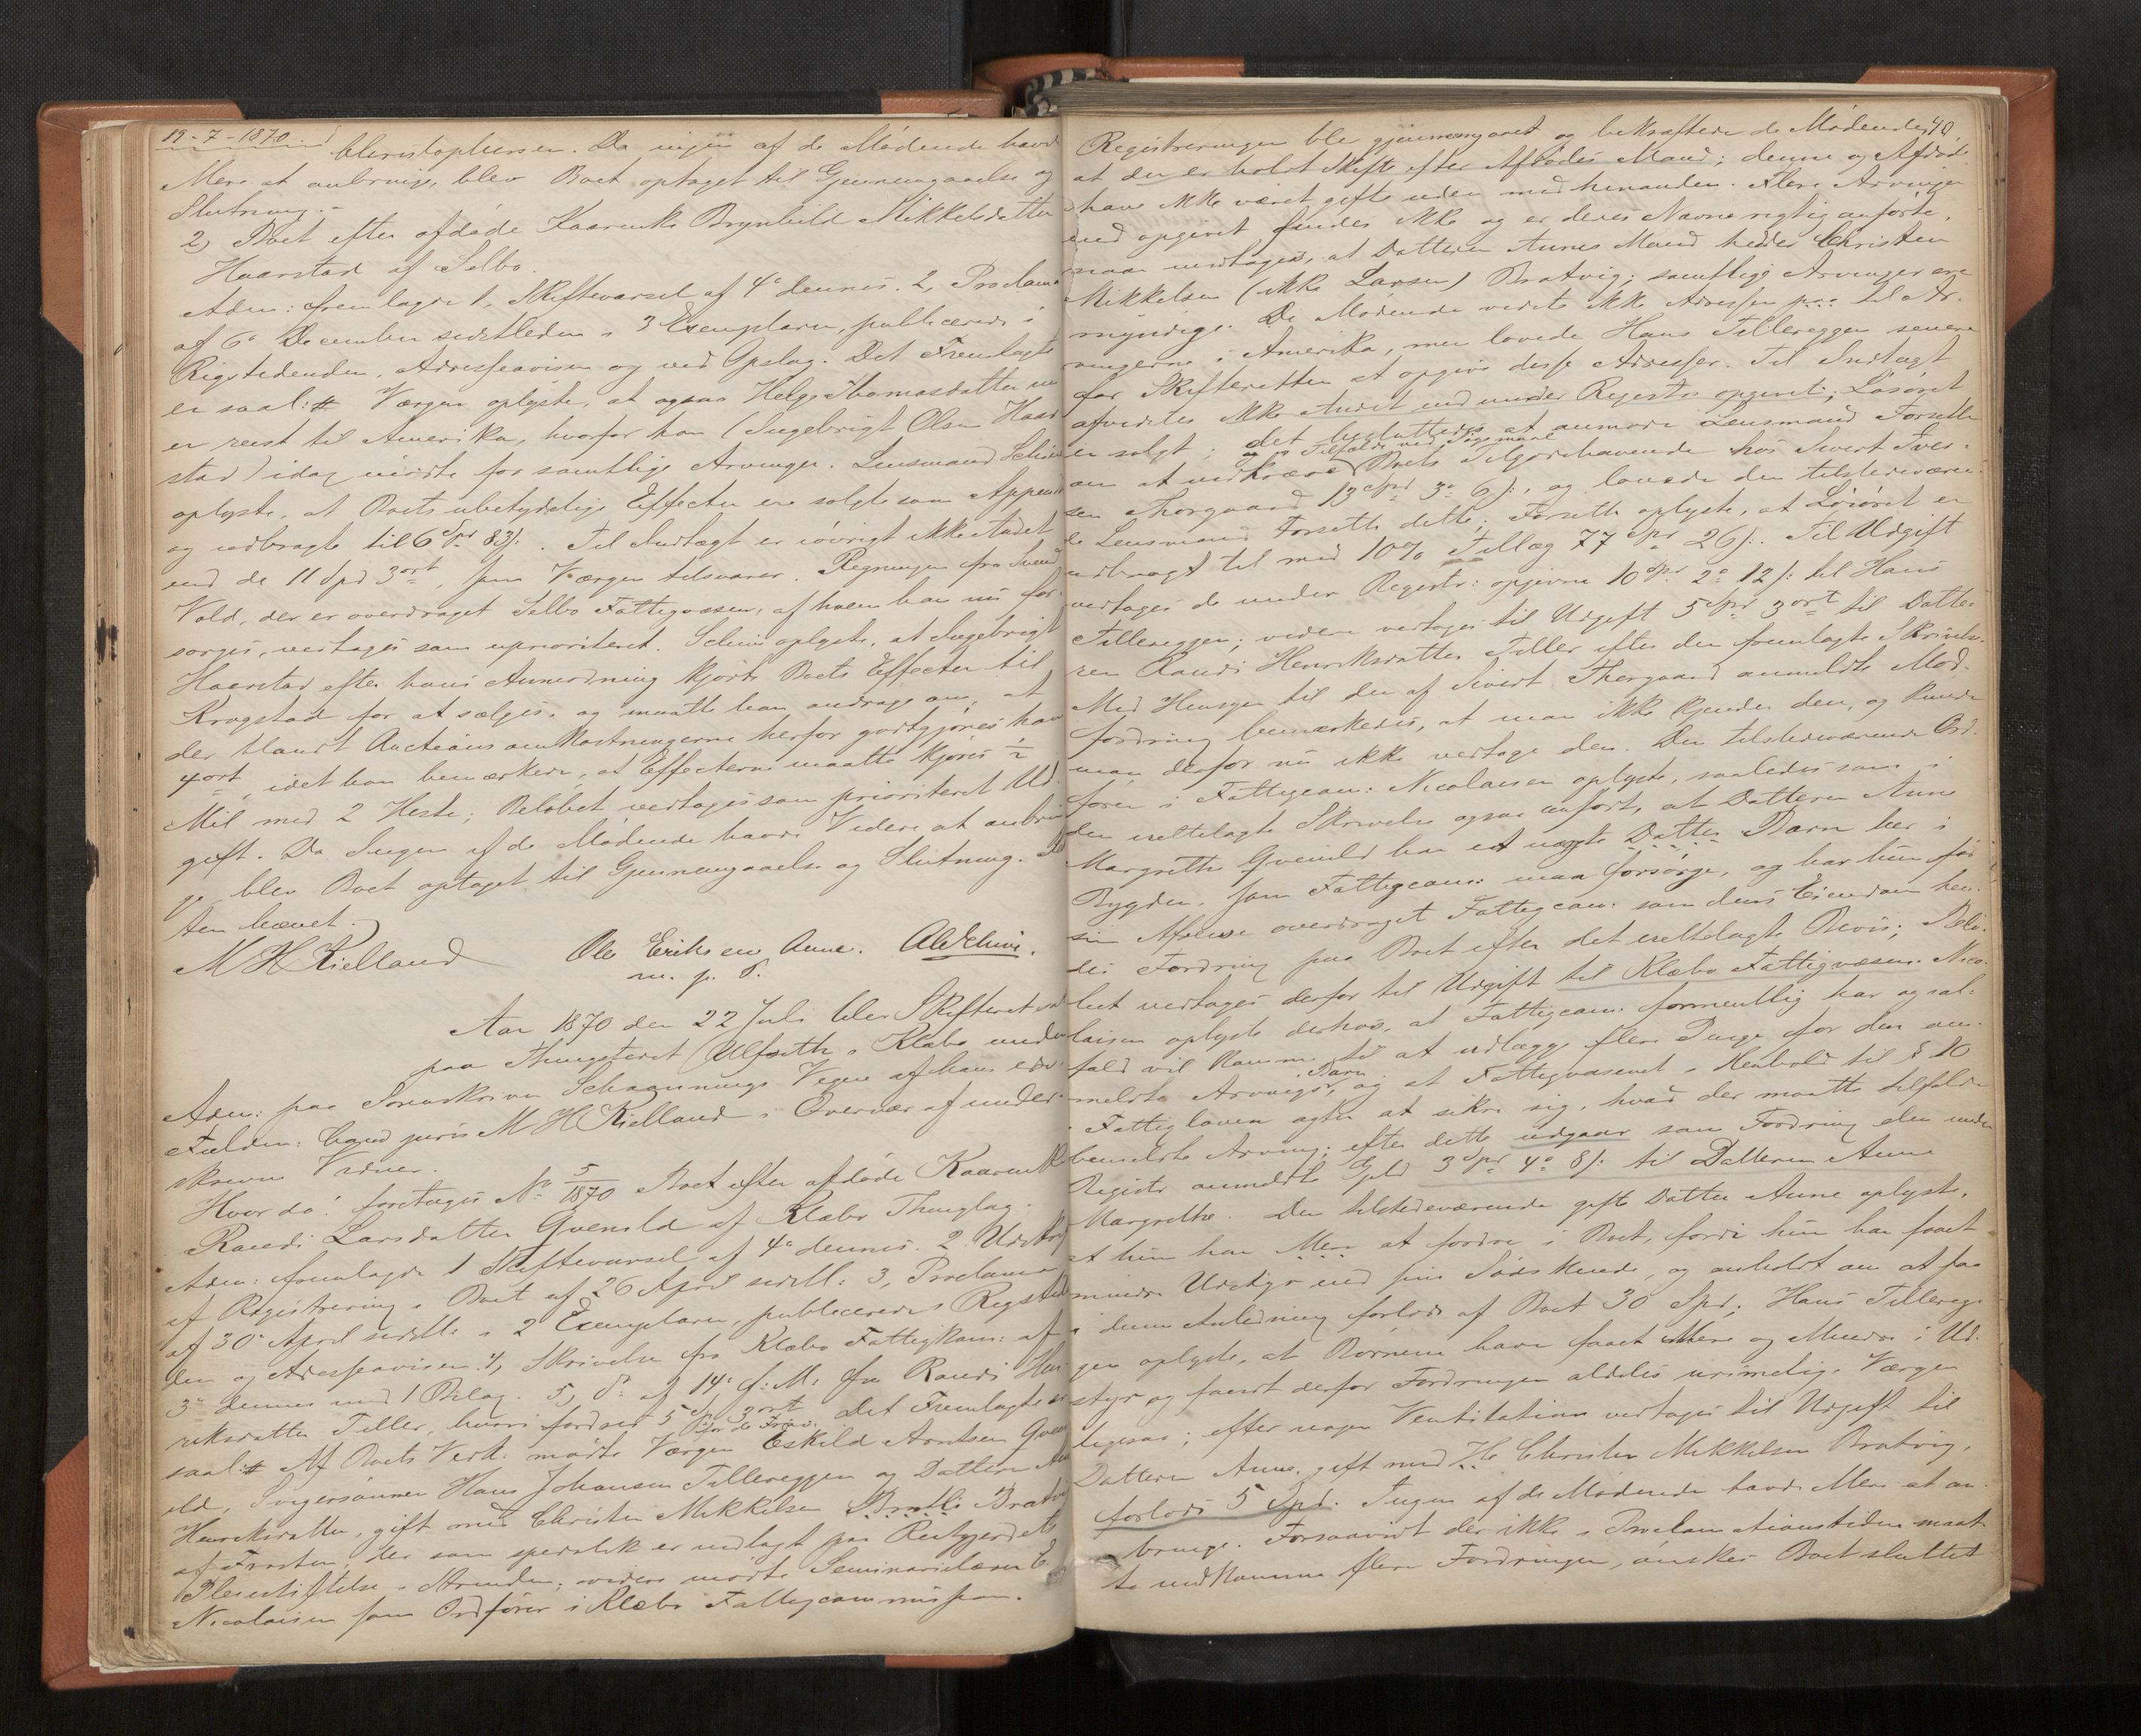 19-7-1870.
Christophersen. Da ingen af de Mødende havde
Mere at anbringe, blev Boet optaget til Gjennemgaaelse og
Slutning.-
2, Boet efter afdøde Kaarenke Brynhild Mikkelsdatter
Haarstad af Selbo.
Adm: fremlagde 1, Skiftevarsel af 4de dennes. 2, Proclama
af 6te December sidstleden i 3 Exemplarer, publicerede i
Rigstidenden, Adresseavisen og ved Opslag. Det Fremlagte
er saal: # Værgen oplyste, at ogsaa Helge Thomasdatter nu
er reist til Amerika, hvorfor han (Ingebrigt Olsen Haar-
stad) idag mødte for samtlige Arvinger. Lensmand Schiu
oplyste, at Boets ubetydelige Effecter ere solgte som Appendix
og udbragte til 6 Spd 83 s. Til Indtægt er iøvrigt ikke Andet
end de 11 Spd 3 ort, som Værgen tilsvarer. Regningen fra Svend
Vold, der er overdraget Selbo Fattigvæsen, af hvem han nu for-
sørges, vedtages som uprioriteret. Schiu oplyste, at Ingebrigt
Haarstad efter hans Anmodning kjørte Boets Effecter til
Krogstad for at sælges, og maatte han andrage om, at
der blandt Auctionsomkostningerne herfor godtgjøres ham
4 ort, idet han bemærkede, at Effecterne maatte kjøres ½
Mil med 2 Heste; Beløbet vedtages som prioriteret Ud-
gift. Da Ingen af de Mødende havde Videre at anbrin-
ge blev Boet optaget til Gjennemgaaelse og Slutning. Ret-
ten hævet.
M H Kielland Ole Eriksen Aune. AldSchiu.
m. p. P.
Aar 1870 den 22 Juli blev Skifteret sat
paa Thingstedet Ulfseth i Klæbo under
Adm: paa Sorenskriver Schanninngs Vegne af hans edsv:
Fuldm: Cand juris M H Kielland i Overvær af under-
skrevne Vidner.
Hvor da: foretages No 5/1870 Boet efter afdøde Kaarenke
Randi Larsdatter Qvenild af Klæbo Thinglag.
Adm: fremlagde 1 Skiftevarsel af 4de dennes. 2, Udskrift
af Registrering i Boet af 26 April sidstl: 3, Proclama
af 30te April sidstl: i 2 Exemplarer, publicerede i Rigstiden-
den og Adresseavisen. 4, Skrivelse fra Klæbo Fattigkom: af
3de dennes med 1 Bilag. 5, Do af 14de f: M: fra Randi Hen-
riksdatter Tiller, hvori fordres 5 Spd 3 ort. Det Fremlagte er
saal: # Af Boets Vedk: mødte Værgen Eskild Arntsen Qven-
ild, Svigersønnen Hans Johansen Tillereggen og Datteren Anne
Henriksdatter, gift med Christen Mikkelsen Bratli Bratvig
af Frosten, der som spedalsk er indlagt paa Reitgjerdets
Pleiestiftelse i Strinden; videre mødte Seminarielærer E.
Nicolaisen som Ordfører i Klæbo Fattigcommission.
40.
Registreringen blev gjennemgaaet og bekræftede de Mødende,
at der er holdt Skifte efter Afdødes Mand; denne og Afdøde
have ikke været gifte uden med hinanden. Flere Arvinger
end opgivet findes ikke og er deres Navne rigtig anførte,
naar undtages, at Datteren Annes Mand hedder Christen
Mikkelsen (ikke Larsen) Bratvig; samtlige Arvinger ere
myndige. De Mødende vidste ikke Adressen paa til Ar-
vingerne i Amerika, men lovede Hans Tillereggen senere
for Skifteretten at opgive disse Adresser. Til Indtægt
afvidstes ikke Andet end under Registr: opgivet; Løsøret
er solgt; det besluttedes at anmode Lensmand Forseth
om at indkræve og i Tilfælde ved Søgsmaal Boets Tilgodehavende hos Sivert Iver-
sen Thorgaard 13 Spd 3 o 6 s., og lovede den tilstedeværen-
de Lensmand Forseth dette; Forseth oplyste, at Løsøret er
udbragt til med 10% Tillæg 77 Spd 26 s. Til Udgift
vedtages de under Registr: opgivne 10 Spd 2 o 12 s. til Hans
Tillereggen; videre vedtages til Udgift 5 Spd 3 ort til Datte-
ren Randi Henriksdatter Tiller efter den fremlagte Skrivelse.
Med Hensyn til den af Sivert Thorgaard anmeldte Mod-
fordring bemærkedes, at man ikke kjender den, og kunde
man derfor nu ikke vedtage den. Den tilstedeværende Ord-
fører i Fattigcom: Nicolaisen oplyste, saaledes som i
den irettelagte Skrivelse ogsaa anført, at Datteren Anne
Margrethe Qvenild har et uægte Datter Barn her i
Bygden, som Fattigcom: maa forsørge, og har hun før
sin Afreise overdraget Fattigcom: som dens Eiendom hen-
des Fordring paa Boet efter det irettelagte Bevis; Belø-
bet vedtages derfor til Udgift til Klæbo Fattigvæsen. Nico-
laisen oplyste derhos, at Fattigcom: formentlig har og ial-
fald vil komme til at udlægge flere Penge for den an-
meldte Arvings Barn, og at Fattigvæsenet i Henhold til § 80
i Fattigloven agter at sikre sig, hvad der maatte tilfalde
bemeldte Arving; efter dette udgaar som Fordring den under
Registr: anmeldte Gjeld 3 Spd 4 o 8 s. til Datteren Anne
Margrethe. Den tilstedeværende gifte Datter Anne oplyste,
at hun har Mere at fordre i Boet, fordi hun har faaet
mindre Udstyr end sine Sødskende, og anholdt om at faa
i denne Anledning forlods af Boet 30 Spd; Hans Tillereg-
gen oplyste, at Børnene have faaet Mere og Mindre i Ud-
styr og fandt derfor Fordringen aldeles urimelig. Værgen
ligesaa; efter nogen Ventilation vedtages til Udgift til
Datteren Anne, gift med He Christen Mikkelsen Bratvig,
forlods 5 Spd. Ingen af de Mødende havde Mere at an-
bringe. Forsaavidt der ikke i Proclamationstiden maat-
te indkomme flere Fordringer, ønskes Boet sluttet